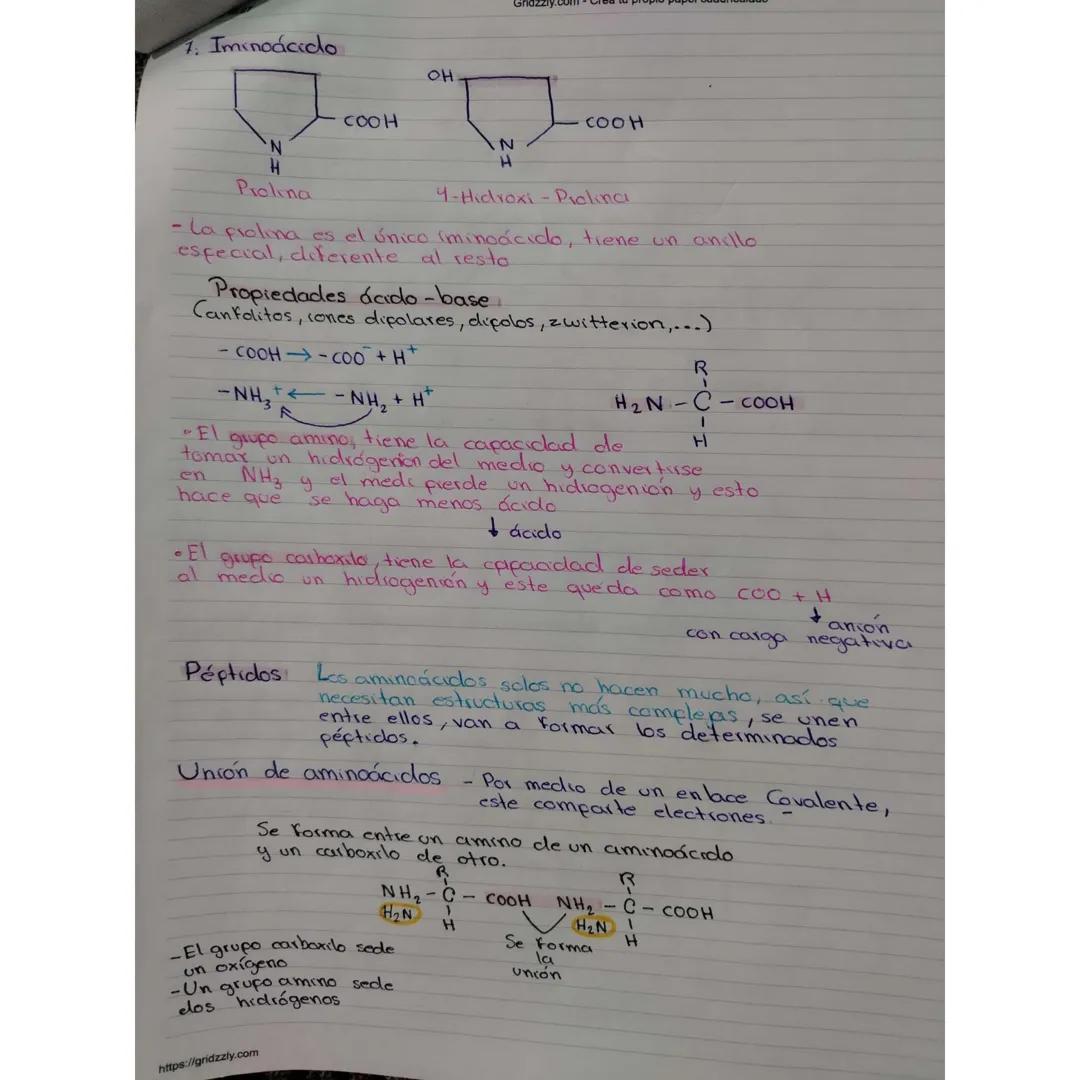 Gridzzly.com - Crea tu propio papel cuadriculado
7. Iminoácido
OH
COOH
COOH
N
H
N
H
Prolina
4-Hidroxi-Prolina
- La prolina es el único iminoácido, tiene un anillo
especial, diferente al resto
Propiedades ácido-base
(anfolitos, iones dipolares, dipolos, zwitterion,...)
- COOH → - COO⁻ + H⁺
- NH₃⁺ ← - NH₂ + H⁺
R
H₂N - C - COOH
H
• El grupo amino, tiene la capacidad de
tomar un hidrógenión del medio y convertirse
en NH₃ y el medi pierde un hidrogenión y esto
hace que se haga menos ácido
↓ ácido
• El grupo carboxilo, tiene la capacidad de seder
al medio un hidrogenión y este queda como COO + H
↓ anión
con carga negativa
Péptidos
Los aminoácidos solos no hacen mucho, así que
necesitan estructuras más complejas, se unen
entre ellos, van a formar los determinados
péptidos.
Unión de aminoácidos - Por medio de un enlace Covalente,
este comparte electrones. -
Se forma entre un amino de un aminoácido
y un carboxilo de otro.
R
R
NH₂ - C - COOH NH₂ - C - COOH
H₂N
H
H₂N
H
Se forma
la
unión
- El grupo carboxilo sede
un oxígeno
- Un grupo amino sede
dos hidrógenos
https://gridzzly.com